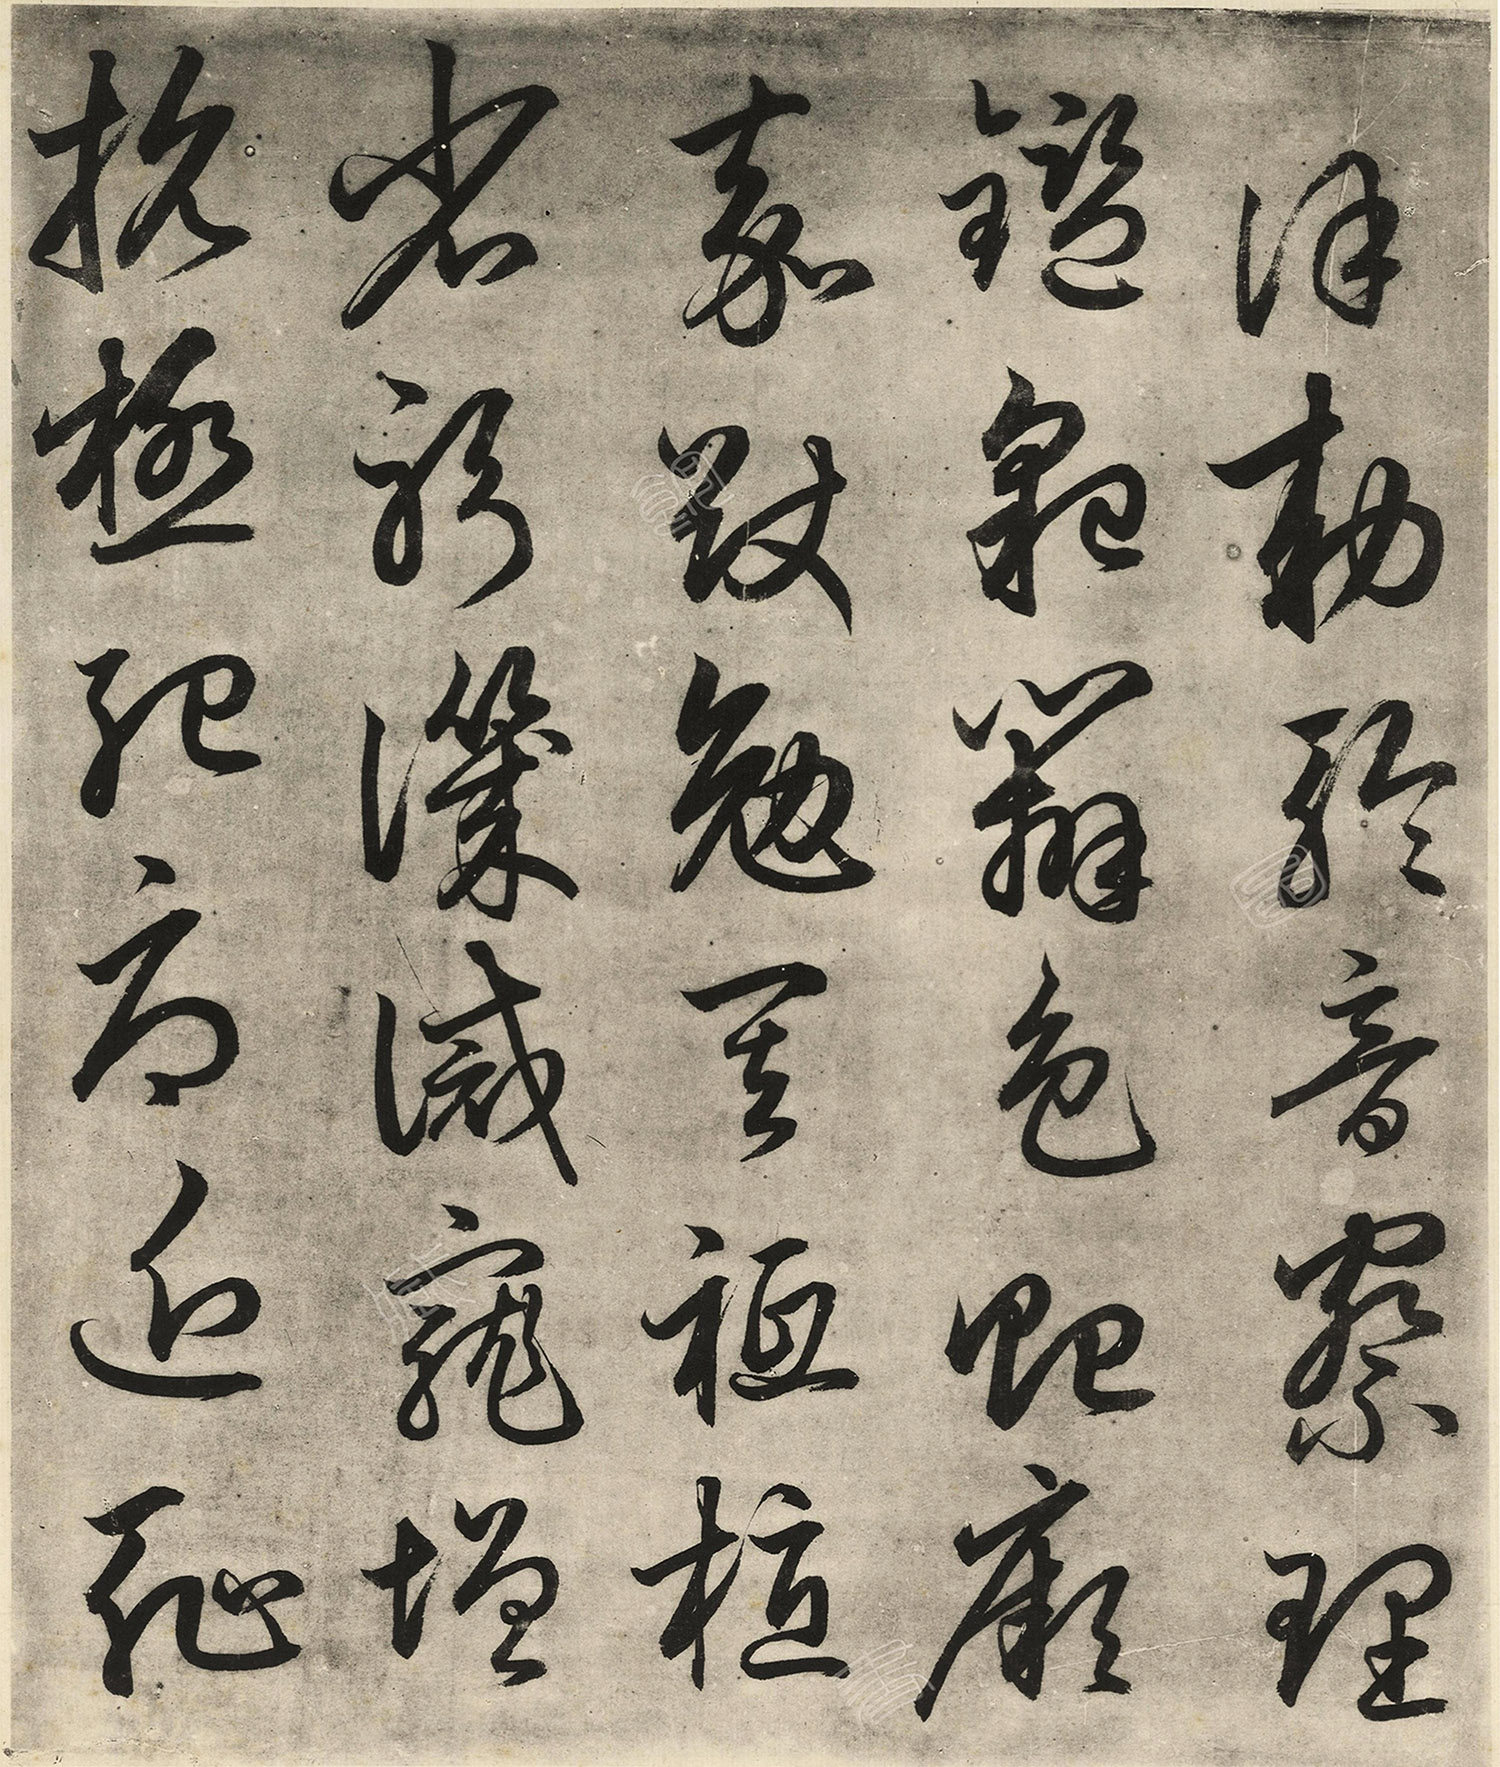 謹勅聆音察理
鑑貌辨色貽厥
嘉猷勉其祗植
省躬譏誡寵增
抗極殆辱近恥